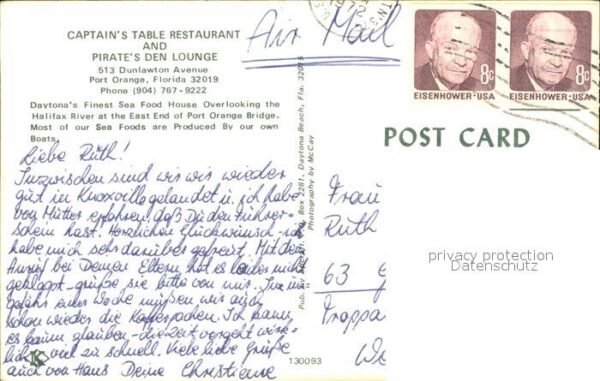 CAPTAIN'S TABLE RESTAURANT
AND
PIRATE'S DEN LOUNGE
513 Dunlawton Avenue
Port Orange, Florida 32019
Phone (904) 767-9222
Daytona's Finest Sea Food House Overlooking the
Halifax River at the East End of Port Orange Bridge.
Most of our Sea Foods are Produced By our own
Boats.
Air Mail
8c
EISENHOWER·USA
8c
EISENHOWER·USA
POST CARD
Liebe Ruth!
Inzwischen sind wir wieder
gut in Knoxville gelandet u. ich habe
von Mutter erfahren, daß Du den Führer-
schein hast. Herzlichen Glückwunsch - ich
habe mich sehr darüber gefreut. Mit dem
Anruf bei Deinen Eltern hat es leider nicht
geklappt - grüße sie bitte von mir. In un-
gefähr einer Woche müssen wir auch
schon wieder die Koffer packen. Ich kann
es kaum glauben - die Zeit vergeht wirk-
lich viel zu schnell. Viele liebe Grüße
auch von Hans Deine Christiane
Box 2281, Daytona Beach, Fla. 32015
Photography by McCay
130093
Frau
Ruth
63
Troppa
privacy protection
Datenschutz